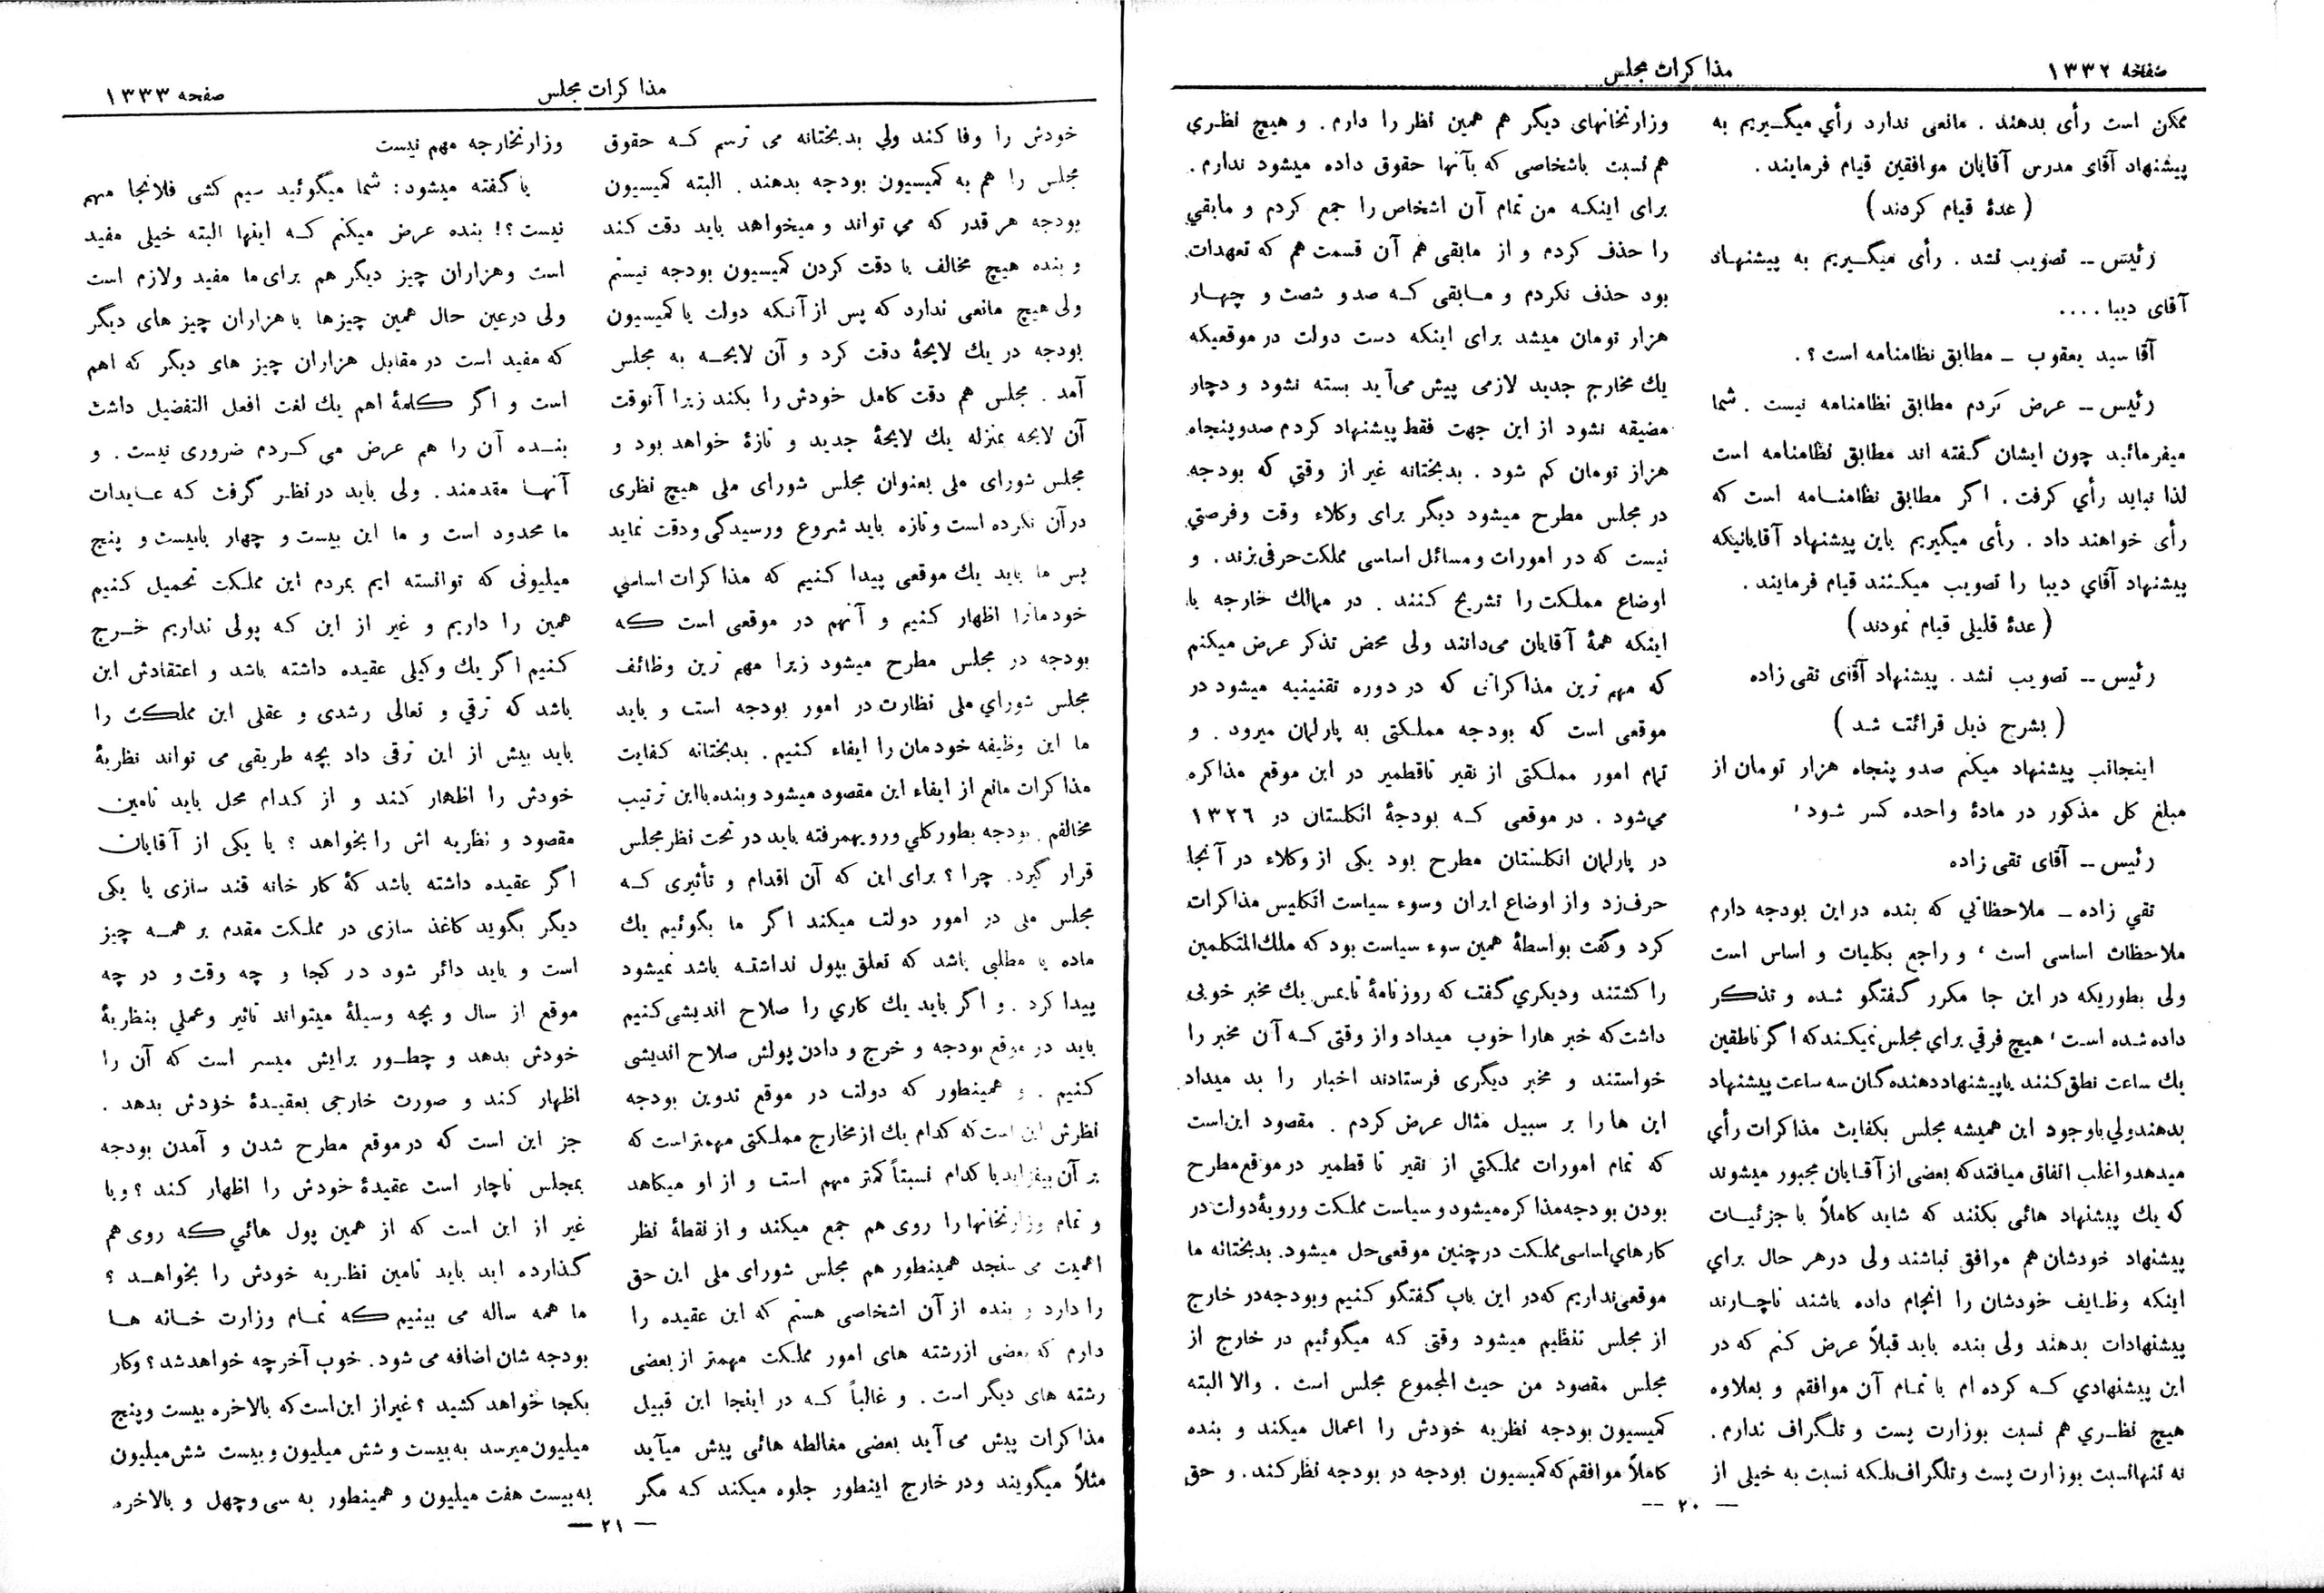 صفحه ۱۳۳۲
مذاکرات مجلس
ممکن است رأی بدهند . مانعی ندارد رأي میگیریم به
پیشنهاد آقای مدرس آقایان موافقین قیام فرمایند .
( عدهٔ قیام کردند )
رئیس -- تصویب نشد . رأی میگیریم به پیشنهاد
آقای دیبا ....
آقا سید یعقوب - مطابق نظامنامه است ؟ .
رئیس -- عرض کردم مطابق نظامنامه نیست . شما
میفرمائید چون ایشان گفته اند مطابق نظامنامه است
لذا نباید رأي گرفت . اگر مطابق نظامنامه است که
رأی خواهند داد . رأی میگیریم باین پیشنهاد آقایانیکه
پیشنهاد آقاي دیبا را تصویب میکنند قیام فرمایند .
( عدهٔ قلیلی قیام نمودند )
رئیس -- تصویب نشد . پیشنهاد آقای تقی زاده
( بشرح ذیل قرائت شد )
اینجانب پیشنهاد میکنم صدو پنجاه هزار تومان از
مبلغ کل مذکور در مادهٔ واحده کسر شود ،
رئیس -- آقای تقی زاده
تقي زاده - ملاحظاتي که بنده در این بودجه دارم
ملاحظات اساسی است ، و راجع بکلیات و اساس است
ولی بطوریکه در این جا مکرر گفتگو شده و تذکر
داده شده است ، هیچ فرقي براي مجلس نمیکند که اگر ناطقین
یك ساعت نطق کنند یا پیشنهاد دهنده گان سه ساعت پیشنهاد
بدهند ولي باوجود این همیشه مجلس بکفایت مذاکرات رأي
میدهد و اغلب اتفاق میافتد که بعضی از آقایان مجبور میشوند
که یك پیشنهاد هائی بکنند که شاید کاملاً با جزئیات
پیشنهاد خودشان هم موافق نباشند ولی درهر حال براي
اینکه وظایف خودشان را انجام داده باشند ناچارند
پیشنهادات بدهند ولی بنده باید قبلاً عرض کنم که در
این پیشنهادي که کرده ام با تمام آن موافقم و بعلاوه
هیچ نظري هم نسبت بوزارت پست و تلگراف ندارم .
نه تنها نسبت بوزارت پست و تلگراف بلکه نسبت به خیلی از
وزارتخانهای دیگر هم همین نظر را دارم . و هیچ نظری
هم نسبت باشخاصی که بآنها حقوق داده میشود ندارم .
برای اینکه من تمام آن اشخاص را جمع کردم و مابقي
را حذف کردم و از مابقی هم آن قسمت هم که تعهدات
بود حذف نکردم و مابقی که صدو شصت و چهار
هزار تومان میشد برای اینکه دست دولت در موقعیکه
یك مخارج جدید لازمی پیش می آید بسته نشود و دچار
مضیقه نشود از این جهت فقط پیشنهاد کردم صدو پنجاه
هزار تومان کم شود . بدبختانه غیر از وقتي که بودجه
در مجلس مطرح میشود دیگر برای وکلاء وقت و فرصتي
نیست که در امورات و مسائل اساسی مملکت حرفی بزند . و
اوضاع مملکت را تشریح کنند . در ممالك خارجه با
اینکه همهٔ آقایان می دانند ولی محض تذکر عرض میکنم
که مهم ترین مذاکراتی که در دوره تقنینیه میشود در
موقعی است که بودجه مملکتی به پارلمان میرود . و
تمام امور مملکتی از نقیر تا قطمیر در این موقع مذاکره
می شود . در موقعی که بودجهٔ انگلستان در ۱۳۲۶
در پارلمان انگلستان مطرح بود یکی از وکلاء در آنجا
حرف زد و از اوضاع ایران و سوء سیاست انگلیس مذاکرات
کرد و گفت بواسطهٔ همین سوء سیاست بود که ملك المتکلمین
را کشتند و دیگري گفت که روزنامهٔ تایمس یك مخبر خوبی
داشت که خبر هارا خوب میداد و از وقتی که آن مخبر را
خواستند و مخبر دیگری فرستادند اخبار را بد میداد
این ها را بر سبیل مثال عرض کردم . مقصود این است
که تمام امورات مملکتي از نقیر تا قطمیر در موقع مطرح
بودن بودجه مذاکره میشود و سیاست مملکت و رویهٔ دولت در
کارهاي اساسی مملکت در چنین موقعی حل میشود . بدبختانه ما
موقعی نداریم که در این باب گفتگو کنیم و بودجه در خارج
از مجلس تنظیم میشود وقتی که میگوئیم در خارج از
مجلس مقصود من حیث المجموع مجلس است . والا البته
کمیسیون بودجه نظریه خودش را اعمال میکند و بنده
کاملاً موافقم که کمیسیون بودجه در بودجه نظر کند . و حق
— ۲۰ —
مذاکرات مجلس
صفحه ۱۳۳۳
خودش را وفا کند ولي بدبختانه می ترسم که حقوق
مجلس را هم به کمیسیون بودجه بدهند . البته کمیسیون
بودجه هر قدر که مي تواند و میخواهد باید دقت کند
و بنده هیچ مخالف با دقت کردن کمیسیون بودجه نیستم
ولی هیچ مانعی ندارد که پس از آنکه دولت یا کمیسیون
بودجه در یك لایحهٔ دقت کرد و آن لایحه به مجلس
آمد . مجلس هم دقت کامل خودش را بکند زیرا آنوقت
آن لایحه بمنزله یك لایحهٔ جدید و تازهٔ خواهد بود و
مجلس شورای ملی بعنوان مجلس شورای ملی هیچ نظری
در آن نکرده است و تازه باید شروع و رسیدگی و دقت نماید
پس ما باید یك موقعی پیدا کنیم که مذاکرات اساسي
خودمانرا اظهار کنیم و آنهم در موقعی است که
بودجه در مجلس مطرح میشود زیرا مهم ترین وظائف
مجلس شوراي ملی نظارت در امور بودجه است و باید
ما این وظیفه خودمان را ایفاء کنیم . بدبختانه کفایت
مذاکرات مانع از ایفاء این مقصود میشود و بنده با این ترتیب
مخالفم . بودجه بطور کلي و رویهمرفته باید در تحت نظر مجلس
قرار گیرد . چرا ؟ برای این که آن اقدام و تأثیری که
مجلس ملی در امور دولت میکند اگر ما بگوئیم یك
ماده یا مطلبی باشد که تعلق بپول نداشته باشد نمیشود
پیدا کرد . و اگر باید یك کاري را صلاح اندیشی کنیم
باید در موقع بودجه و خرج و دادن پولش صلاح اندیشی
کنیم . و همینطور که دولت در موقع تدوین بودجه
نظرش این است که کدام یك از مخارج مملکتی مهمتر است که
بر آن بیفزاید یا کدام نسبتاً کمتر مهم است و از او میکاهد
و تمام وزارتخانها را روی هم جمع میکند و از نقطهٔ نظر
اهمیت می سنجد همینطور هم مجلس شورای ملی این حق
را دارد و بنده از آن اشخاصی هستم که این عقیده را
دارم که بعضی از رشته های امور مملکت مهمتر از بعضی
رشته های دیگر است . و غالباً که در اینجا این قبیل
مذاکرات پیش می آید بعضی مغالطه هائی پیش میآید
مثلاً میگویند و در خارج اینطور جلوه میکند که مگر
وزارتخارجه مهم نیست
یا گفته میشود : شما میگوئید سیم کشی فلانجا مهم
نیست ؟! بنده عرض میکنم که اینها البته خیلی مفید
است و هزاران چیز دیگر هم برای ما مفید و لازم است
ولی در عین حال همین چیزها با هزاران چیز های دیگر
که مفید است در مقابل هزاران چیز های دیگر که اهم
است و اگر کلمهٔ اهم یك لغت افعل التفضیل داشت
بنده آن را هم عرض می کردم ضروری نیست . و
آنها مقدمند . ولی باید در نظر گرفت که عایدات
ما محدود است و ما این بیست و چهار یا بیست و پنج
میلیونی که توانسته ایم بمردم این مملکت تحمیل کنیم
همین را داریم و غیر از این که پولی نداریم خرج
کنیم اگر یك وکیلی عقیده داشته باشد و اعتقادش این
باشد که ترقي و تعالی رشدی و عقلی این مملکت را
باید بیش از این ترقی داد بچه طریقی می تواند نظریهٔ
خودش را اظهار کند و از کدام محل باید تامین
مقصود و نظریه اش را بخواهد ؟ یا یکی از آقایان
اگر عقیده داشته باشد که کار خانه قند سازی یا یکی
دیگر بگوید کاغذ سازی در مملکت مقدم بر همه چیز
است و باید دائر شود در کجا و چه وقت و در چه
موقع از سال و بچه وسیلهٔ میتواند تاثیر و عملي بنظریهٔ
خودش بدهد و چطور برایش میسر است که آن را
اظهار کند و صورت خارجی بعقیدهٔ خودش بدهد .
جز این است که در موقع مطرح شدن و آمدن بودجه
بمجلس ناچار است عقیدهٔ خودش را اظهار کند ؟ و یا
غیر از این است که از همین پول هائي که روی هم
گذارده اید باید تامین نظریه خودش را بخواهد ؟
ما همه ساله می بینیم که تمام وزارت خانه ها
بودجه شان اضافه می شود . خوب آخر چه خواهد شد ؟ و کار
بکجا خواهد کشید ؟ غیر از این است که بالاخره بیست و پنج
میلیون میرسد به بیست و شش میلیون و بیست شش میلیون
به بیست هفت میلیون و همینطور به سی و چهل و بالاخره
— ۲۱ —